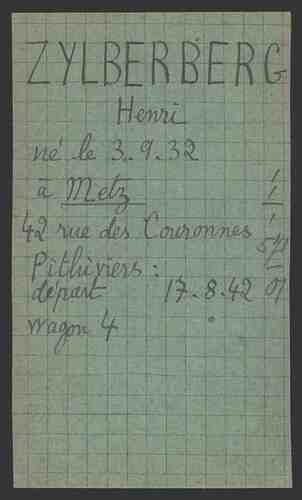 ZYLBERBERG
Henri
né le 3.9.32
à Metz
42 rue des Couronnes
Pithiviers :
départ 17.8.42
wagon 4